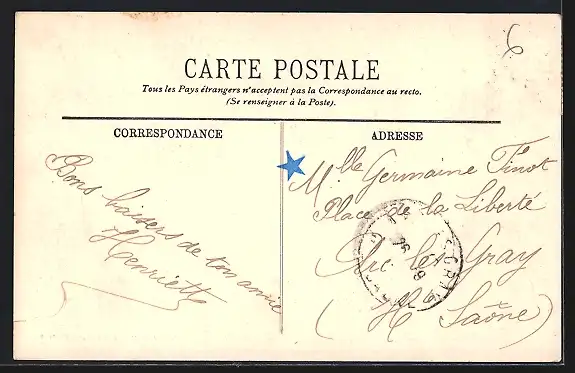 6
CARTE POSTALE
Tous les Pays étrangers n'acceptent pas la Correspondance au recto.
(Se renseigner à la Poste).
CORRESPONDANCE
Bons baisers de ton amie
Henriette
ADRESSE
Mlle Germaine Finot
Place de la Liberté
Arc les Gray
(Hte Saône)